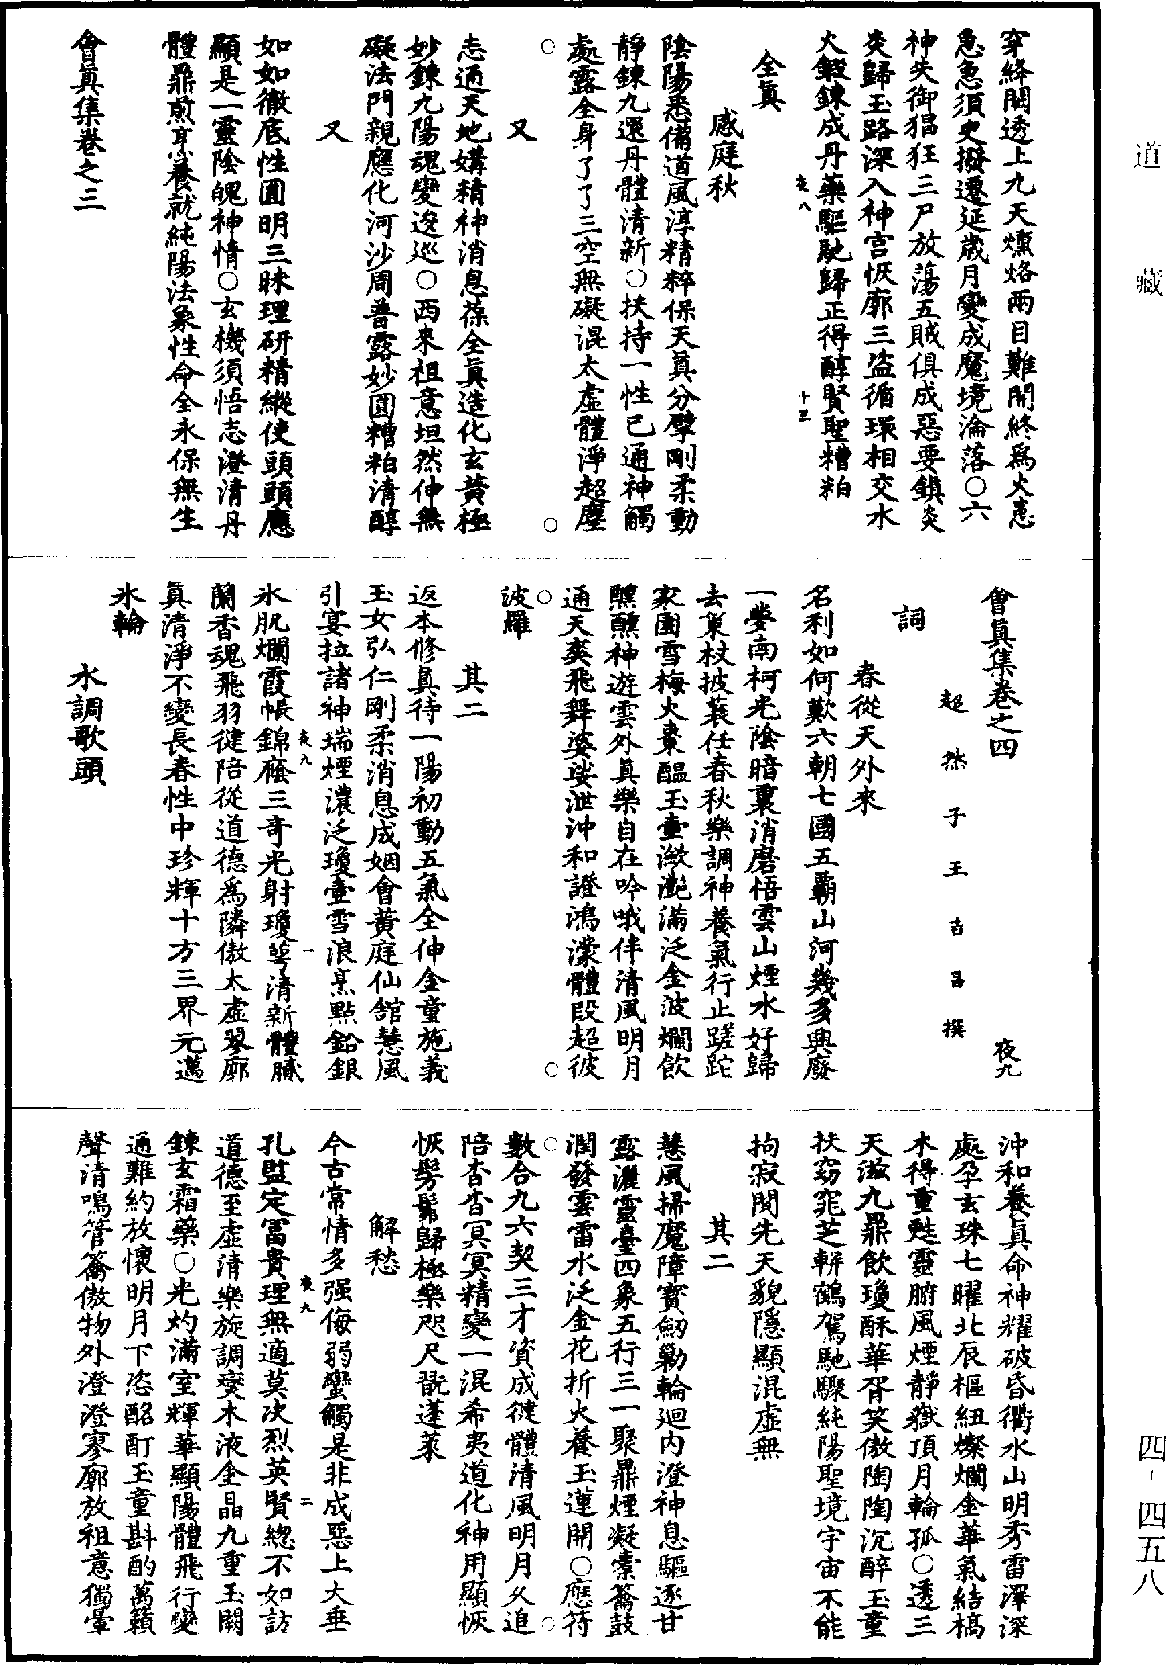 道藏
穿絳闕透上九天燻烙兩目難開終為火恚
急急須臾撥遷延歲月變成魔境淪落○六
神失御猖狂三尸放蕩五賊俱成惡要鎮炎
炎歸玉路深入神宮恢廓三盜循環相交水
火鍛鍊成丹藥驅馳歸正得醇賢聖糟粕
夜八
十五
全真
感庭秋
陰陽悉備道風淳精粹保天真分擘剛柔動
靜鍊九還丹體清新○扶持一性已通神觸
處露全身了了三空無礙混太虛體淨超塵
又
志通天地媾精神消息葆全真造化玄黃極
妙鍊九陽魂變逡巡○西來祖意坦然伸無
礙法門親應化河沙周普露妙圓糟粕清醇
又
如如徹底性圓明三昧理研精縱使頭頭應
顯是一靈陰魄神情○玄機須悟志澄清丹
體鼎煎烹養就純陽法象性命全永保無生
會真集卷之三
會真集卷之四
夜九
超然子王吉昌撰
詞
春從天外來
名利如何歎六朝七國五霸山河幾多興廢
一夢南柯光陰暗裏消磨悟雲山煙水好歸
去巢杖披蓑任春秋樂調神養氣行止蹉跎
家園雪梅火棗醞玉壺瀲灩滿泛金波爛飲
醺醺神遊雲外真樂自在吟哦伴清風明月
通天爽飛舞婆娑泄沖和證鴻濛體段超彼
波羅
其二
返本修真待一陽初動五氣全伸金童施義
玉女弘仁剛柔消息成姻會黃庭仙舘慧風
引宴拉諸神瑞煙濃泛瓊壺雪浪烹點鉛銀
氷肌爛霞帳錦蔭三奇光射瓊萼清新體膩
夜九
一
蘭香魂飛羽徤陪從道德為隣傲太虛寥廓
真清淨不變長春性中珍輝十方三界元邁
氷輪
水調歌頭
沖和養真命神耀破昏衢水山明秀雷澤深
處孕玄珠七曜北辰樞紐燦爛金華氣結槁
木得重甦靈腑風煙靜嶽頂月輪孤○透三
天滋九鼎飲瓊酥華胥笑傲陶陶沉醉玉童
扶窈窕芝輧鶴駕馳驟純陽聖境宇宙不能
拘寂閴先天貌隱顯混虛無
其二
慧風掃魔障寳劒勦輪廻內澄神息驅逐甘
露灑靈臺四象五行三一聚鼎煙凝橐籥鼓
潤發雲雷水泛金花折火養玉蓮開○應符
數合九六契三才資成徤體清風明月久追
陪杳杳冥冥精變一混希夷道化神用顯恢
恢髣髴歸極樂咫尺翫蓬萊
解愁
今古常情多强侮弱蠻觸是非成惡上大垂
孔監定富貴理無適莫決烈英賢緫不如訪
夜九
二
道德至虛清樂旋調燮木液金晶九重玉闕
鍊玄霜藥○光灼滿室輝華顯陽體飛行變
通難約放懷明月下恣酩酊玉童斟酌萬籟
聲清鳴管籥傲物外澄澄寥廓放祖意獨暈
四－四五八